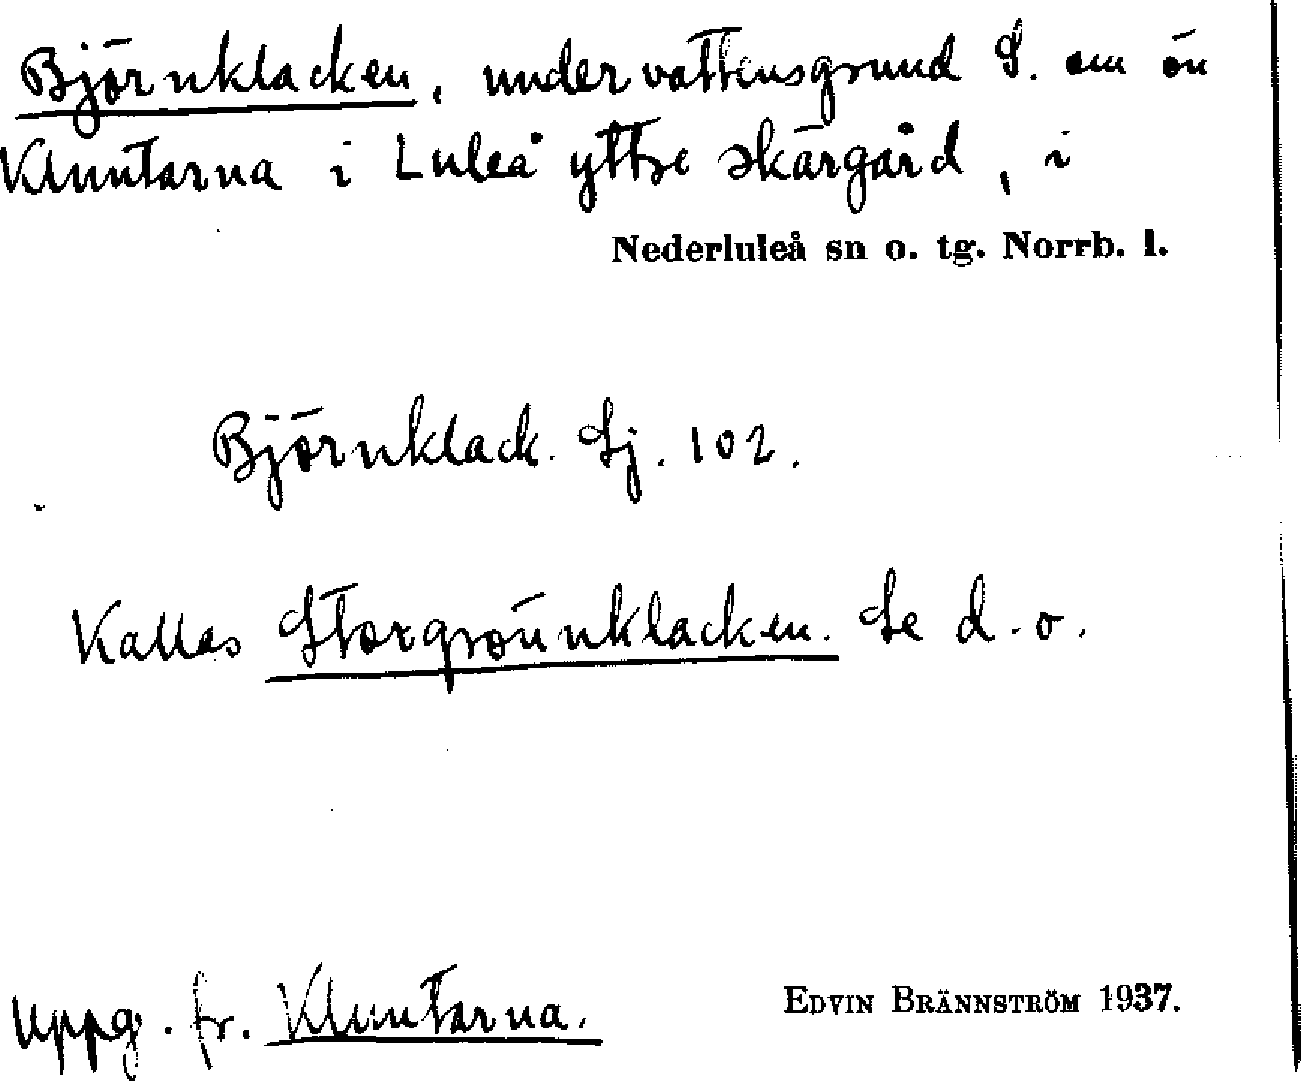 Björnklacken, undervattensgrund S. om ön
Kluntarna i Luleå yttre skärgård, i
Nederluleå sn o. tg. Norrb. l.
Björnklack. Sj. 102.
Kallas Storgrönnklacken. Se d. o.
Uppg. fr. Kluntarna.
EDVIN BRÄNNSTRÖM 1937.